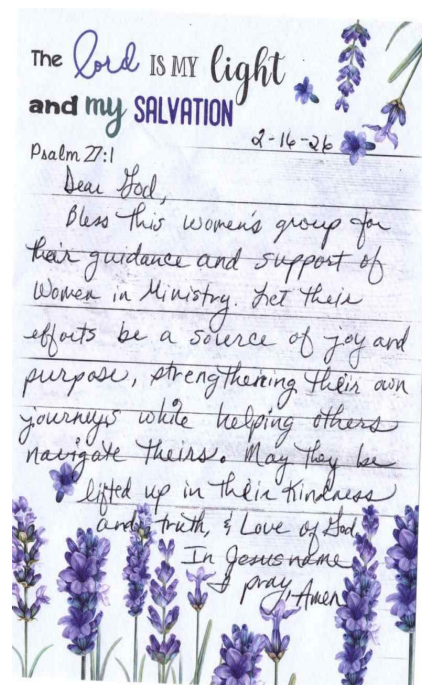 The Lord IS MY light
and my SALVATION
2-16-26
Psalm 27:1
Dear God,
Bless this women's group for
their guidance and support of
Women in Ministry. Let their
efforts be a source of joy and
purpose, strengthening their own
journeys while helping others
navigate theirs. May they be
lifted up in their Kindness
and truth, & Love of God.
In Jesus name
I pray, Amen